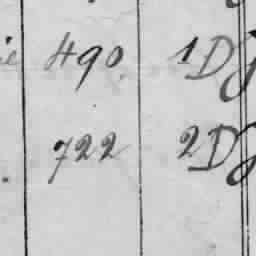 490. 1D
722 2D